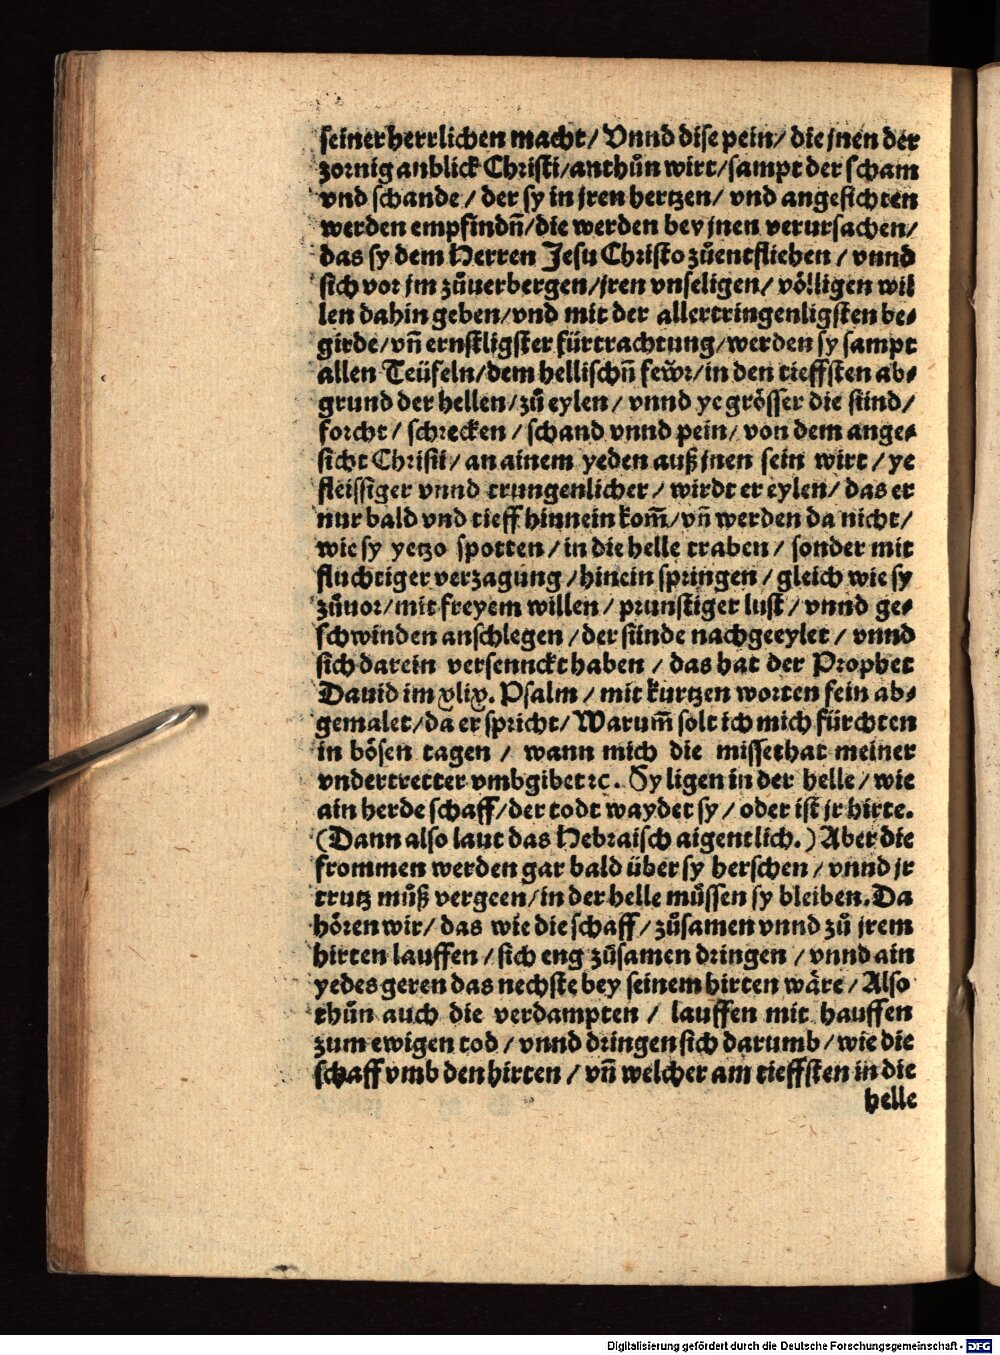 seiner herrlichen macht / Vnnd dise pein / die jnen der
zornig anblick Christi / anthůn wirt / sampt der scham
vnd schande / der sy in jren hertzen / vnd angesichten
werden empfindñ / die werden bey jnen verursachen /
das sy dem Herren Jesu Christo zůentfliehen / vnnd
sich vor jm zůuerbergen / jren vnseligen / völligen wil
len dahin geben / vnd mit der allertringenligsten be⸗
girde / vñ ernstligster fürtrachtung / werden sy sampt
allen Teüfeln / dem hellischñ fewr / in den tieffsten ab⸗
grund der hellen / zů eylen / vnnd ye grösser die sünd /
forcht / schrecken / schand vnnd pein / von dem ange⸗
sicht Christi / an ainem yeden auß jnen sein wirt / ye
fleissiger vnnd trungenlicher / wirdt er eylen / das er
nur bald vnd tieff hinnein kom̃ / vñ werden da nicht /
wie sy yetzo spotten / in die helle traben / sonder mit
fluchtiger verzagung / hinein springen / gleich wie sy
zůuor / mit freyem willen / prunstiger lust / vnnd ge⸗
schwinden anschlegen / der sünde nachgeeylet / vnnd
sich darein versennckt haben / das hat der Prophet
Dauid im xlix. Psalm / mit kurtzen worten fein ab⸗
gemalet / da er spricht / Warum̃ solt ich mich fürchten
in bösen tagen / wann mich die missethat meiner
vndertretter vmbgibet ꝛc. Sy ligen in der helle / wie
ain herde schaff / der todt waydet sy / oder ist jr hirte.
(Dann also laut das Hebraisch aigentlich.) Aber die
frommen werden gar bald über sy herschen / vnnd jr
trutz můß vergeen / in der helle müssen sy bleiben. Da
hören wir / das wie die schaff / zůsamen vnnd zů jrem
hirten lauffen / sich eng zůsamen dringen / vnnd ain
yedes geren das nechste bey seinem hirten wäre / Also
thůn auch die verdampten / lauffen mit hauffen
zum ewigen tod / vnnd dringen sich darumb / wie die
schaff vmb den hirten / vñ welcher am tieffsten in die
helle
Digitalisierung gefördert durch die Deutsche Forschungsgemeinschaft - DFG